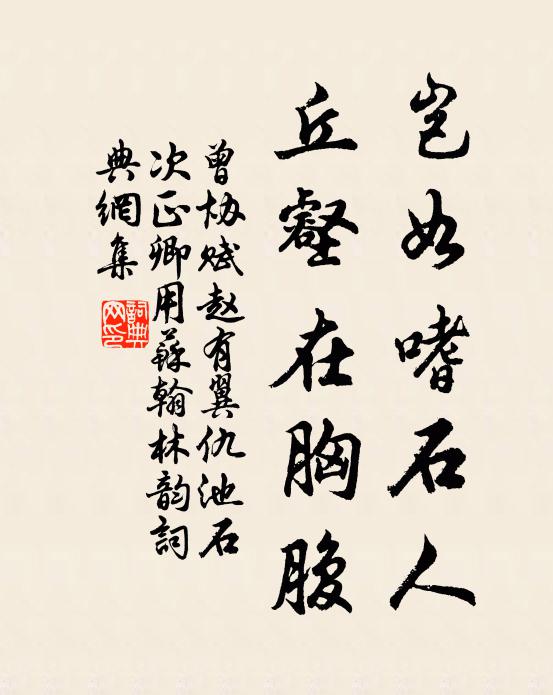 岂如嗜石人
丘壑在胸腹
曾协赋赵有翼仇池石
次正卿用蘇翰林韵詞
典網集
詞典网印